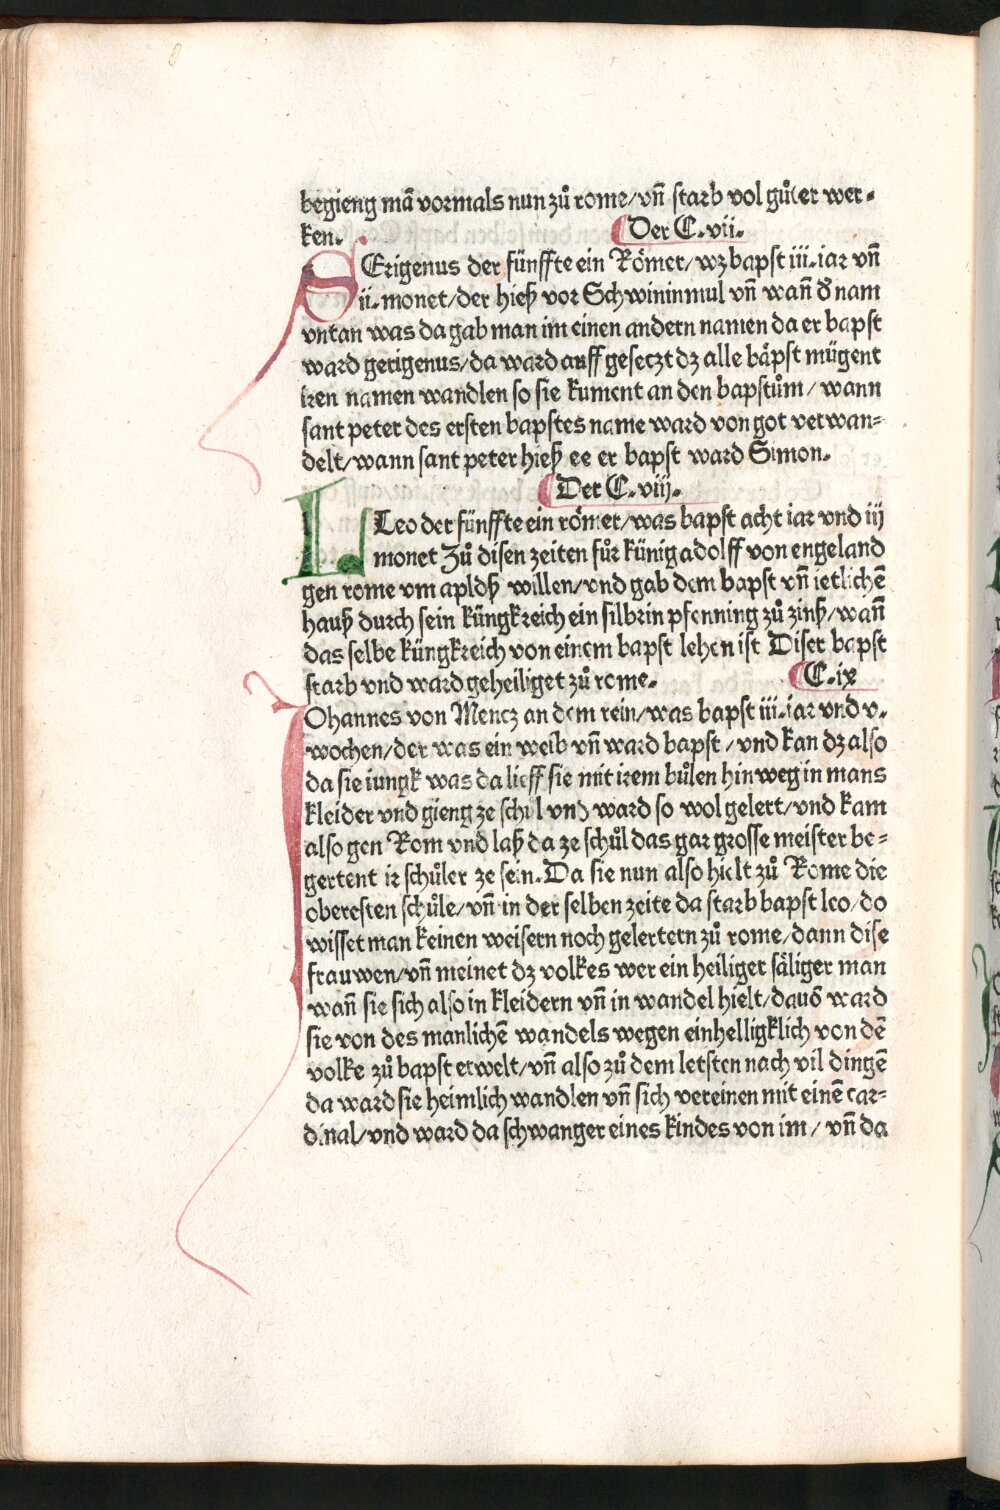 begieng mā vormals nun zů rome/vn̄ starb vol gůter wer⸗
ken.
Der C.vii.
SErigenus der fünffte ein Römer/wz bapst iii.iar vn̄
ii.monet/der hieß vor Schwininmul vn̄ wan̄ d̕ nam
vntan was da gab man im einen andern namen da er bapst
ward gerigenus/da ward auff geseczt dz alle bäpst mügent
iren namen wandlen so sie kument an den bapstům/wann
sant peter des ersten bapstes name ward von got verwan⸗
delt/wann sant peter hieß ee er bapst ward Simon.
Der C.viii.
LLeo der fünffte ein römer/was bapst acht iar vnd iij
monet Zů disen zeiten fůr künig adolff von engeland
gen rome vm aplds willen/vnd gab dem bapst vn̄ ietlichē
hauß durch sein küngkreich ein silbrin pfenning zů zinß/wan̄
das selbe küngkreich von einem bapst lehen ist Diser bapst
starb vnd ward geheiliget zů rome.
C.ix
IOhannes von Mencz an dem rein/was bapst iii.iar vnd v.
wochen/der was ein weib vn̄ ward bapst/vnd kan dz also
da sie iungk was da lieff sie mit irem bůlen hinweg in mans
kleider vnd gieng ze schůl vnd ward so wol gelert/vnd kam
also gen Rom vnd laß da ze schůl das gar grosse meister be⸗
gertent ir schůler ze sein.Da sie nun also hielt zů Rome die
oberesten schůle/vn̄ in der selben zeite da starb bapst leo/do
wisset man keinen weisern noch gelertern zů rome/dann dise
frauwen/vn̄ meinet dz volkes wer ein heiliger säliger man
wan̄ sie sich also in kleidern vn̄ in wandel hielt/dauō ward
sie von des manlichē wandels wegen einhelligklich von dē
volke zů bapst erwelt/vn̄ also zů dem letsten nach vil dingē
da ward sie heimlich wandlen vn̄ sich vereinen mit einē car⸗
dinal/vnd ward da schwanger eines kindes von im/vn̄ da